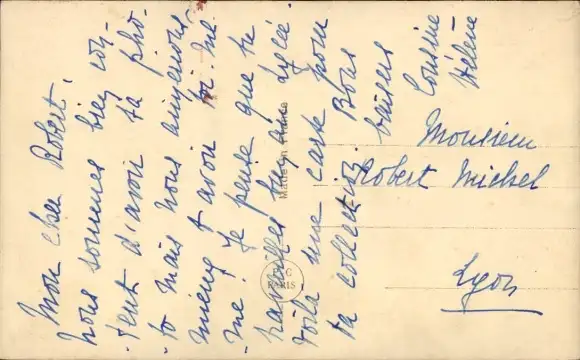 Mon cher Robert.
Nous sommes bien con-
-tent d'avoir ta pho-
-to mais nous aimerions
mieux t'avoir toi-mê-
-me. Je pense que tu
travailles bien au Lycée.
Voilà une carte pour
ta collection. Bons
baisers
Cousine
Hélène
Made in France
C
PARIS
Monsieur
Robert Michel
Lyon